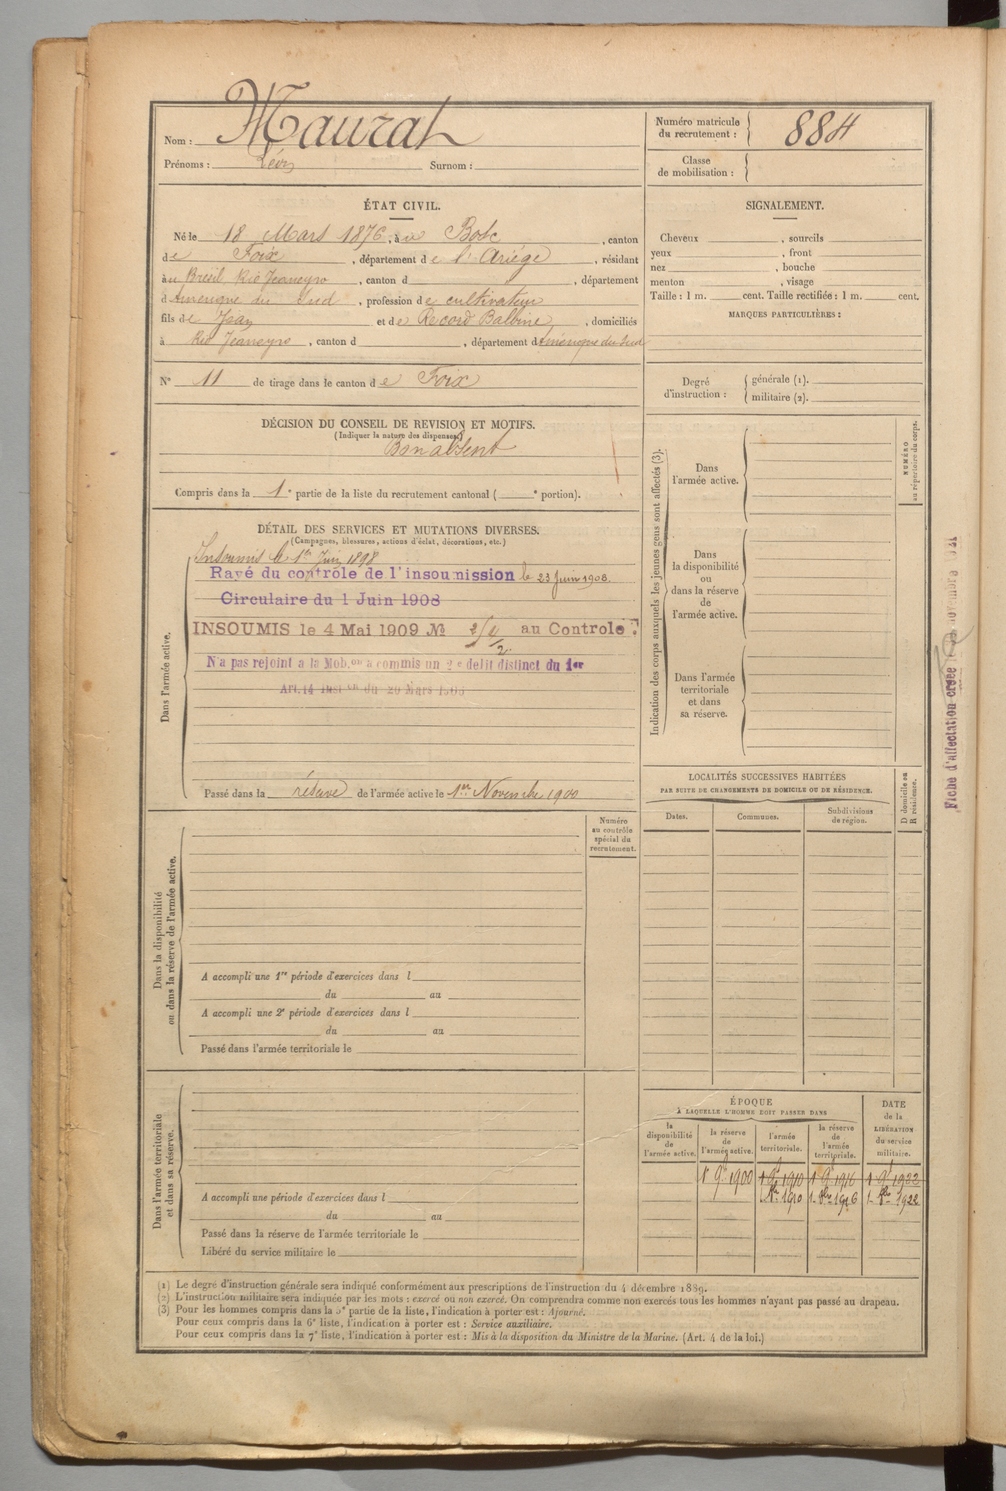 Nom : Maurat
Prénoms : Léon Surnom :
Numéro matricule du recrutement : 884
Classe de mobilisation :
ÉTAT CIVIL.
Né le 18 Mars 1876, à Bosc, canton
de Foix, département de l'Ariége, résidant
au Bresil Rio Jeaneyro, canton d , département
d'Amerique du Sud, profession de cultivateur
fils de Jean et de Record Balbine, domiciliés
à Rio Jeaneyro, canton d , département d'Amérique du Sud
N° 11 de tirage dans le canton de Foix
SIGNALEMENT.
Cheveux , sourcils
yeux , front
nez , bouche
menton , visage
Taille : 1 m. cent. Taille rectifiée : 1 m. cent.
MARQUES PARTICULIÈRES :
Degré d'instruction : générale (1).
militaire (2).
DÉCISION DU CONSEIL DE REVISION ET MOTIFS.
(Indiquer la nature des dispenses)
Bon absent
Compris dans la 1e partie de la liste du recrutement cantonal ( e portion).
DÉTAIL DES SERVICES ET MUTATIONS DIVERSES.
(Campagnes, blessures, actions d'éclat, décorations, etc.)
Dans l'armée active.
Insoumis le 1er Juin 1898
Rayé du contrôle de l'insoumission le 23 Juin 1908.
Circulaire du 1 Juin 1908
INSOUMIS le 4 Mai 1909 No au Controle
N'a pas rejoint a la Mob.on a commis un 2e delit distinct du 1er
Art. 14 Inst.on du 20 Mars 1906
Passé dans la réserve de l'armée active le 1er Novembre 1900
Indication des corps auxquels les jeunes gens sont affectés (3).
Dans l'armée active.
Dans la disponibilité ou dans la réserve de l'armée active.
Dans l'armée territoriale et dans sa réserve.
NUMÉRO au répertoire du corps.
Fiche d'affectation créée
LOCALITÉS SUCCESSIVES HABITÉES
PAR SUITE DE CHANGEMENTS DE DOMICILE OU DE RÉSIDENCE.
Dates. Communes. Subdivisions de région. D domicile ou R résidence.
Dans la disponibilité ou dans la réserve de l'armée active.
Numéro au contrôle spécial du recrutement.
A accompli une 1re période d'exercices dans l
du au
A accompli une 2e période d'exercices dans l
du au
Passé dans l'armée territoriale le
Dans l'armée territoriale et dans sa réserve.
A accompli une période d'exercices dans l
du au
Passé dans la réserve de l'armée territoriale le
Libéré du service militaire le
ÉPOQUE
À LAQUELLE L'HOMME DOIT PASSER DANS
la disponibilité de l'armée active. la réserve de l'armée active. l'armée territoriale. la réserve de l'armée territoriale. DATE de la LIBÉRATION du service militaire.
1 9bre 1900 1 9bre 1910 1 9bre 1916 1 9bre 1922
1910 1916 1922
(1) Le degré d'instruction générale sera indiqué conformément aux prescriptions de l'instruction du 4 décembre 1889.
(2) L'instruction militaire sera indiquée par les mots : exercé ou non exercé. On comprendra comme non exercés tous les hommes n'ayant pas passé au drapeau.
(3) Pour les hommes compris dans la 5e partie de la liste, l'indication à porter est : Ajourné.
Pour ceux compris dans la 6e liste, l'indication à porter est : Service auxiliaire.
Pour ceux compris dans la 7e liste, l'indication à porter est : Mis à la disposition du Ministre de la Marine. (Art. 4 de la loi.)